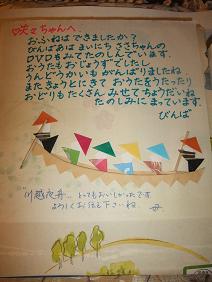 ♡ささちゃんへ
おふねはできましたか？
びんばあはまいにち ささちゃんの
DVDをみてたのしんでいます。
おうたもおじょうずでしたし
うんどうかいもがんばりましたね
またきょうとにきて おうたをうたったり
おどりもたくさん みせてちょうだいね
たのしみにまっています。
びんば
川越夜舟... とってもおいしかったです
よろしくお伝え下さいね